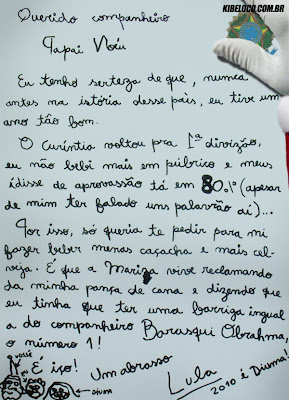 KIBELOCO.COM.BR
Querido companheiro
Papai Noéu
Eu tenho serteza de que, nunca
antes na istória desse país, eu tive um
ano tão bom.
O Curíntia voltou pra 1ª divizão,
eu não bebi mais em púbrico e meus
ídisse de aprovassão tá em 80% (apesar
de mim ter falado uns palavrão aí)...
Por isso, só queria te pedir para mi
fazer beber menas caçacha e mais cel-
veja. É que a Mariza vive reclamando
da minha pança de cana e dizendo que
eu tinha que ter uma barriga ingual
a do companheiro Barasqui Obrahma,
o número 1!
É iço! Um abrasso
Lula
2010 é Diuma!
Nossié
eu
DIUMA